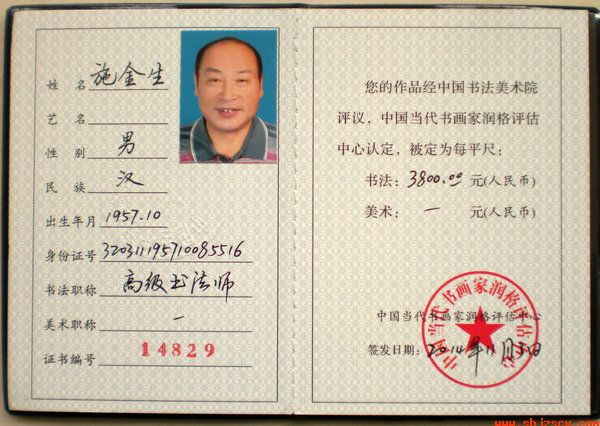 姓 名 施金生
艺 名
性 别 男
民 族 汉
出生年月 1957.10
身份证号 320311195710085516
书法职称 高级书法师
美术职称 一
证书编号 14829
您的作品经中国书法美术院
评议，中国当代书画家润格评估
中心认定，被定为每平尺：
书法：3800.00 元(人民币)
美术： 一 元(人民币)
中国当代书画家润格评估中心
中国当代书画家润格评估中心
签发日期：2014年11月3日
www.shjzscx.com